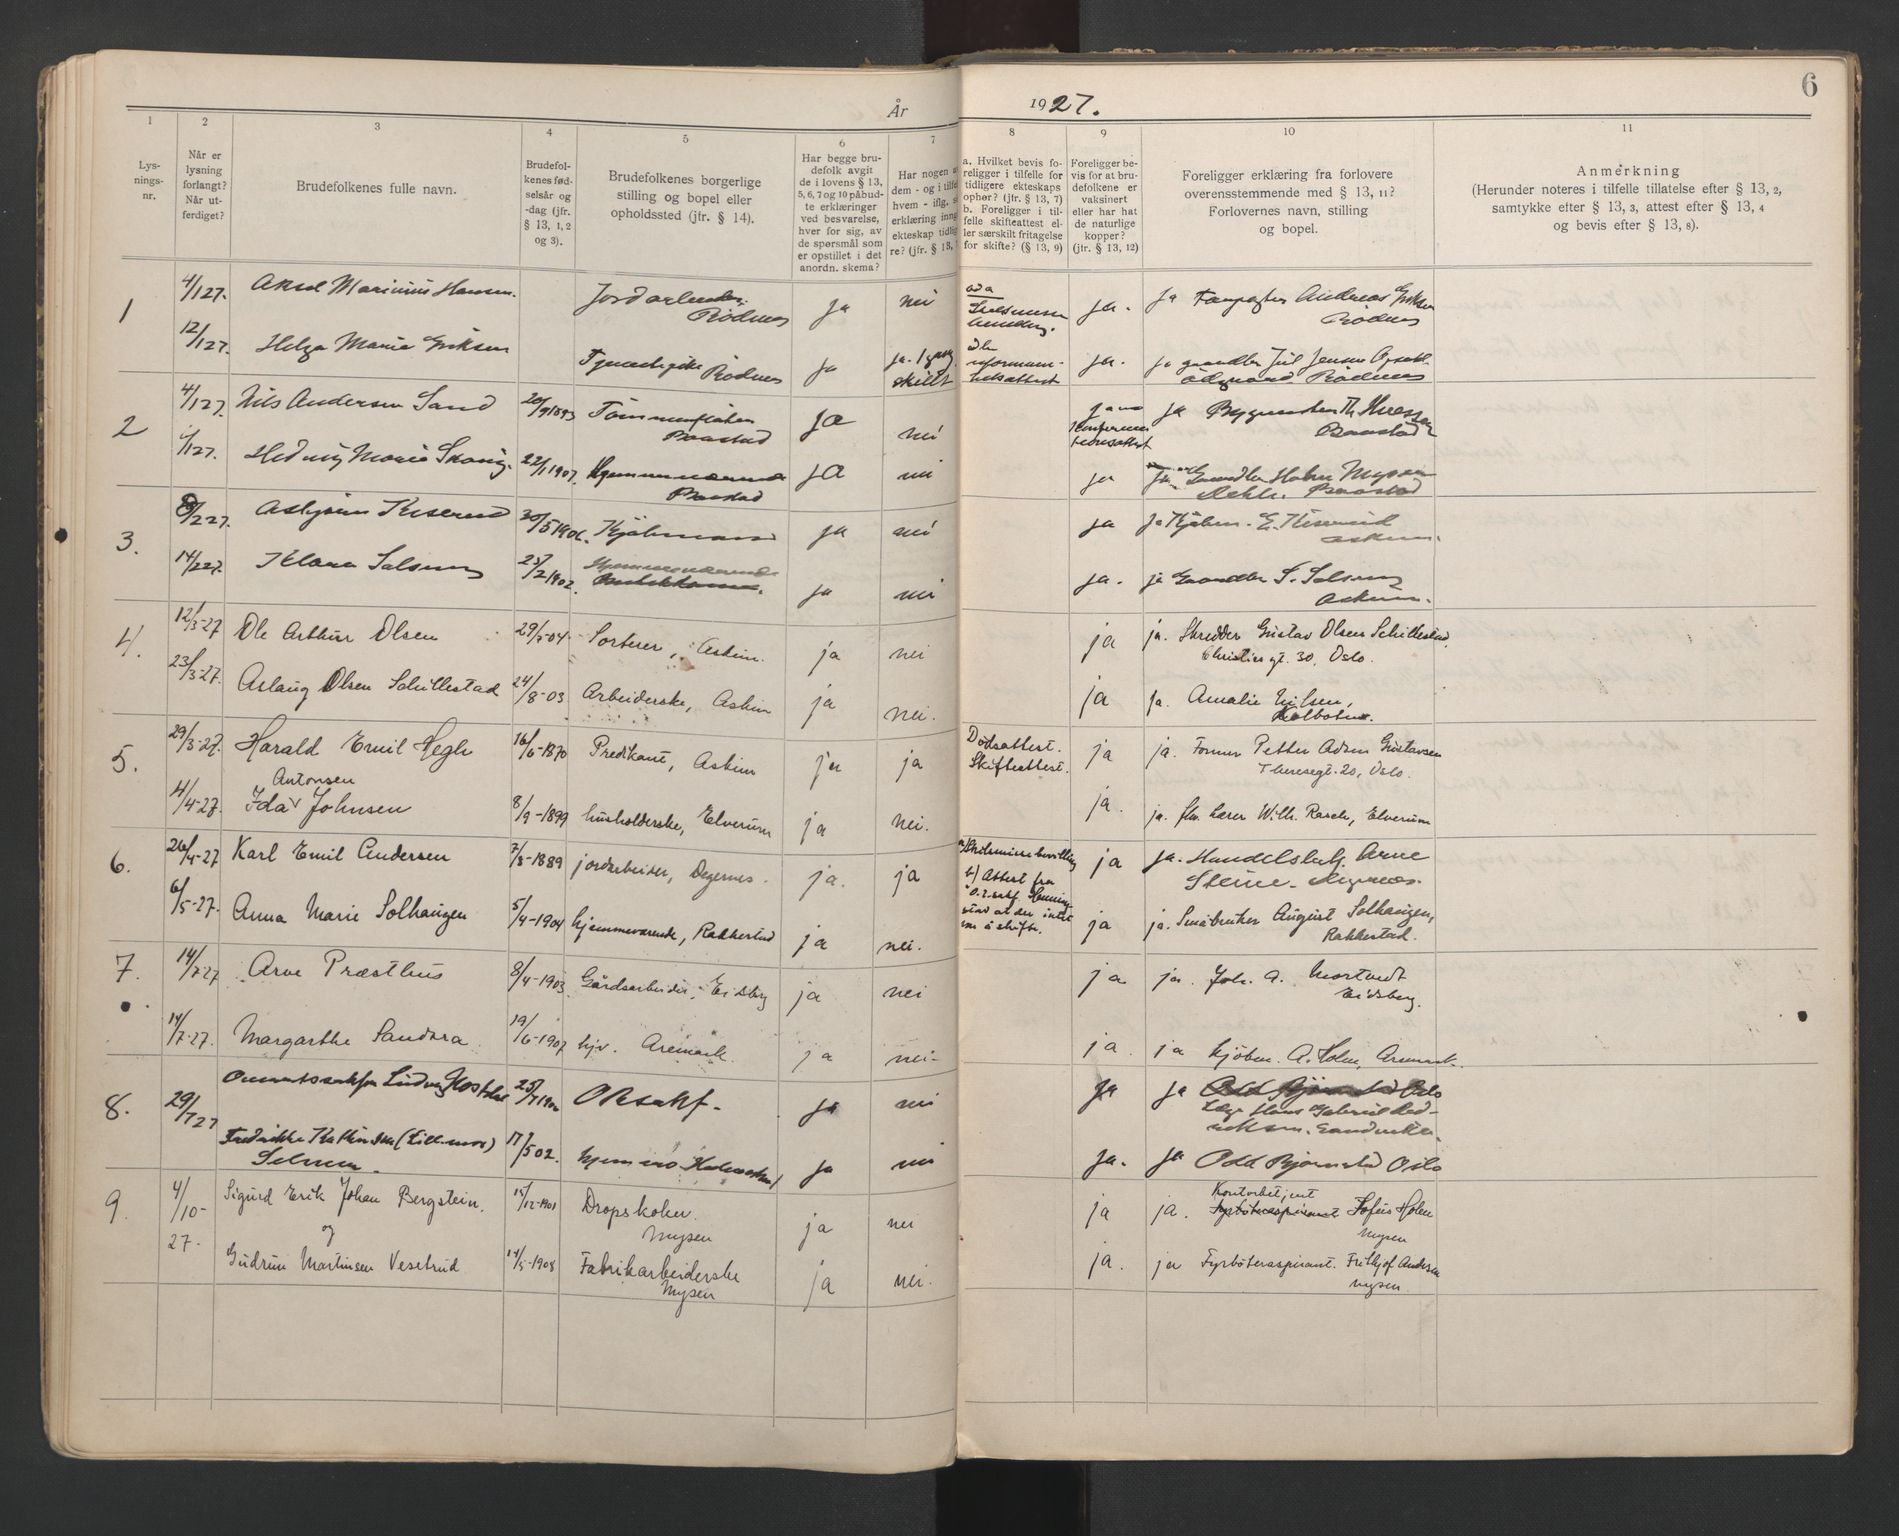 År 1927.
6
1
2
3
4
5
6
7
8
9
10
11
Lys-
nings-
nr.
Når er
lysning
forlangt?
Når ut-
ferdiget?
Brudefolkenes fulle navn.
Brudefol-
kenes fød-
selsår og
-dag (jfr.
§ 13, 1, 2
og 3).
Brudefolkenes borgerlige
stilling og bopel eller
opholdssted (jfr. § 14).
Har begge bru-
defolk avgit
de i lovens § 13,
5, 6, 7 og 10 påbud-
te erklæringer
ved besvarelse,
hver for sig, av
de spørsmål som
er opstillet i det
anordn. skema?
Har nogen av
dem - og i tilfel
hvem - iflg. s
erklæring inng
ekteskap tidlig
re? (jfr. § 13,
a. Hvilket bevis fo-
religger i tilfelle for
tidligere ekteskaps
ophør? (jfr. § 13, 7)
b. Foreligger i til-
felle skifteattest el-
ler særskilt fritagelse
for skifte? (§ 13, 9)
Foreligger be-
vis for at bru-
defolkene er
vaksinert
eller har hat
de naturlige
kopper?
(jfr. § 13, 12)
Foreligger erklæring fra forlovere
overensstemmende med § 13, 11?
Forlovernes navn, stilling
og bopel.
Anmerkning
(Herunder noteres i tilfelle tillatelse efter § 13, 2,
samtykke efter § 13, 3, attest efter § 13, 4
og bevis efter § 13, 8).
1 4/1 27. Aksel Marinius Hansen. Rødnes ja nei ja. ja Andreas Eriksen
Rødnes
12/1 27. Helga Marie Eriksen Rødnes ja ja. 1 gang
skilt ja. ja gaardbr. Jul Jensen
Rødnes
2 4/1 27. Nils Andersen Sand 20/9 1893 Tømmerfløter
Baastad ja nei ja
Konfirma-
tionsattest ja
Baastad
/1 27. Hedvig Marie 22/1 1907. Hjemmeværende
Baastad ja nei ja Gaardbr. Mysen
Baastad
3. 8/2 27. Asbjørn Kiserud 30/5 1906. Kjøbmand ja nei ja ja Kjøbm. E. Kiserud
Askim.
14/2 27. Klara Solsum 25/2 1902. Hjemmeværende
ja nei ja. ja Gaardbr. S. Solsum
Askim.
4. 12/3-27 Ole Arthur Olsen 29/ -04. Sorterer, Askim. ja nei ja ja. Skredder Gustav Olsen Schillestad,
Christies gt. 30, Oslo.
23/3-27. Aslaug Olsen Schillestad 24/8-03 Arbeiderske, Askim ja nei. ja ja. Amalie Nilsen,
Kolbotn.
5. 29/3-27. Harald Emil Hegh 16/6-1870 Predikant, Askim ja ja Dødsattest.
Skifteattest. ja ja. Former Petter Adsen Gustavsen
Theresegt. 20, Oslo.
4/4-27. Antonsen
Ida Johnsen 8/9-1899 husholderske, Elverum ja nei. ja. ja. fhv. lærer Wilh. Rasch, Elverum
6. 26/4-27 Karl Emil Andersen 7/8-1889 jordarbeider, Degernes. ja. ja a) Skilsmissebevilling
b) Attest fra
o.r.sakf. Henning-
stad at der intet
var å skifte. ja ja. Handelsbet. Arne
Steine. Degernes.
6/5-27. Anna Marie Solhaugen 5/4-1904 hjemmeværende, Rakkestad ja nei. ja ja. Småbruker August Solhaugen,
Rakkestad.
7. 14/7 27 Arve Præsthus 8/4-1903 Gårdsarbeider, Eidsberg ja nei ja ja. Joh. A. Mortvedt
Eidsberg.
14/7-27. Margarthe Sandara. 19/6-1907 hjv. Aremark. ja nei- ja. ja kjøbm. A. Holm, Aremark.
8. 29/7 27 Overretssakfører Ludvig 25/ ORsakf. ja nei ja ja Odd Bjørnstad Oslo
Læge Hans Gabriel
Sandvika.
Fredrikke Kathinka (Lillemor)
17/5 02. ja nei ja. ja Odd Bjørnstad Oslo
9. 4/10-27. Sigurd Erik Johan Bergstein. /12-1901 Dropskoker.
Mysen ja nei ja ja. Kontorbetjent
Fyrbøteraspirant Sofus Holm
Mysen
og
Gudrun Martinsen Vesetrud /5-1908 Fabrikarbeiderske
Mysen ja nei. ja. ja Fyrbøteraspirant. Frithjof Andersen
Mysen.